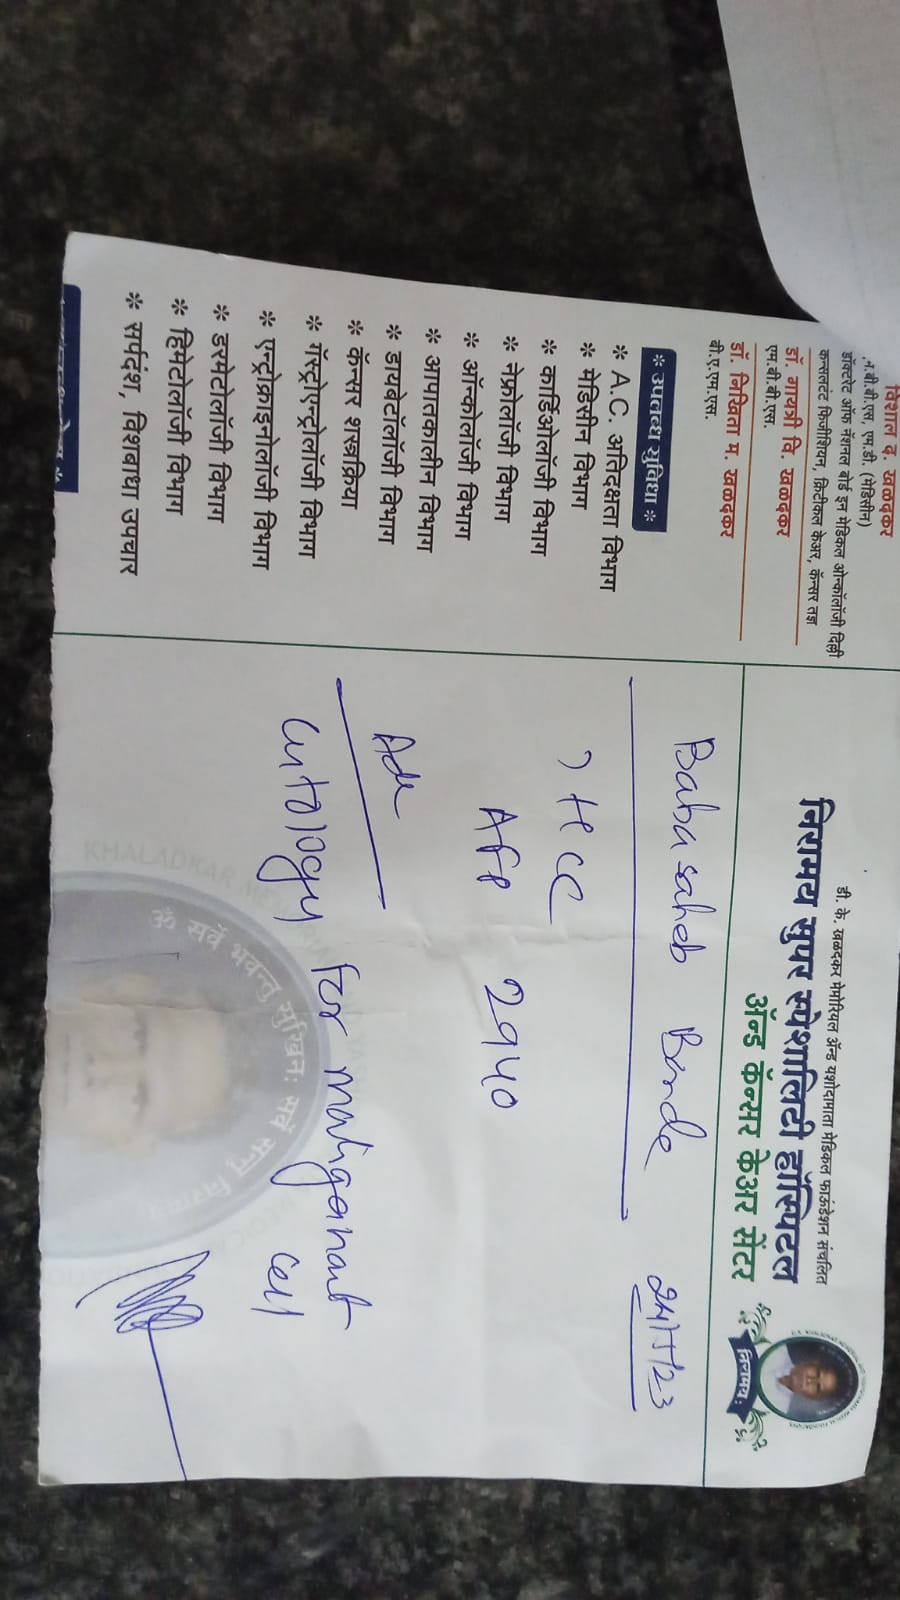 डी. के. खळदकर मेमोरियल ॲन्ड यशोदामाता मेडिकल फाऊंडेशन संचलित
निरामय सुपर स्पेशालिटी हॉस्पिटल
ॲन्ड कॅन्सर केअर सेंटर
निरामयः
विशाल द. खळदकर
एम.बी.बी.एस, एम.डी. (मेडिसीन)
डॉक्टरेट ऑफ नॅशनल बोर्ड इन मेडिकल ओन्कॉलॉजी दिल्ली
कन्सलटंट फिजीशियन, क्रिटीकल केअर, कॅन्सर तज्ञ
डॉ. गायत्री वि. खळदकर
एम.बी.बी.एस.
डॉ. निखिता म. खळदकर
बी.ए.एम.एस.
* उपलब्ध सुविधा *
* A.C. अतिदक्षता विभाग
* मेडिसीन विभाग
* कार्डिओलॉजी विभाग
* नेफ्रोलॉजी विभाग
* ऑन्कोलॉजी विभाग
* आपातकालीन विभाग
* डायबेटॉलॉजी विभाग
* कॅन्सर शस्त्रक्रिया
* गॅस्ट्रोएन्ट्रोलॉजी विभाग
* एन्ट्रोक्राइनोलॉजी विभाग
* डरमेटोलॉजी विभाग
* हिमेटोलॉजी विभाग
* सर्पदंश, विषबाधा उपचार
Babasaheb Bande 24/5/23
HCC
AFP 2940
Adv
Cytology for maliganant cell
KHALADKAR
ॐ सर्वे भवन्तु सुखिनः सर्वे सन्तु निरामयाः